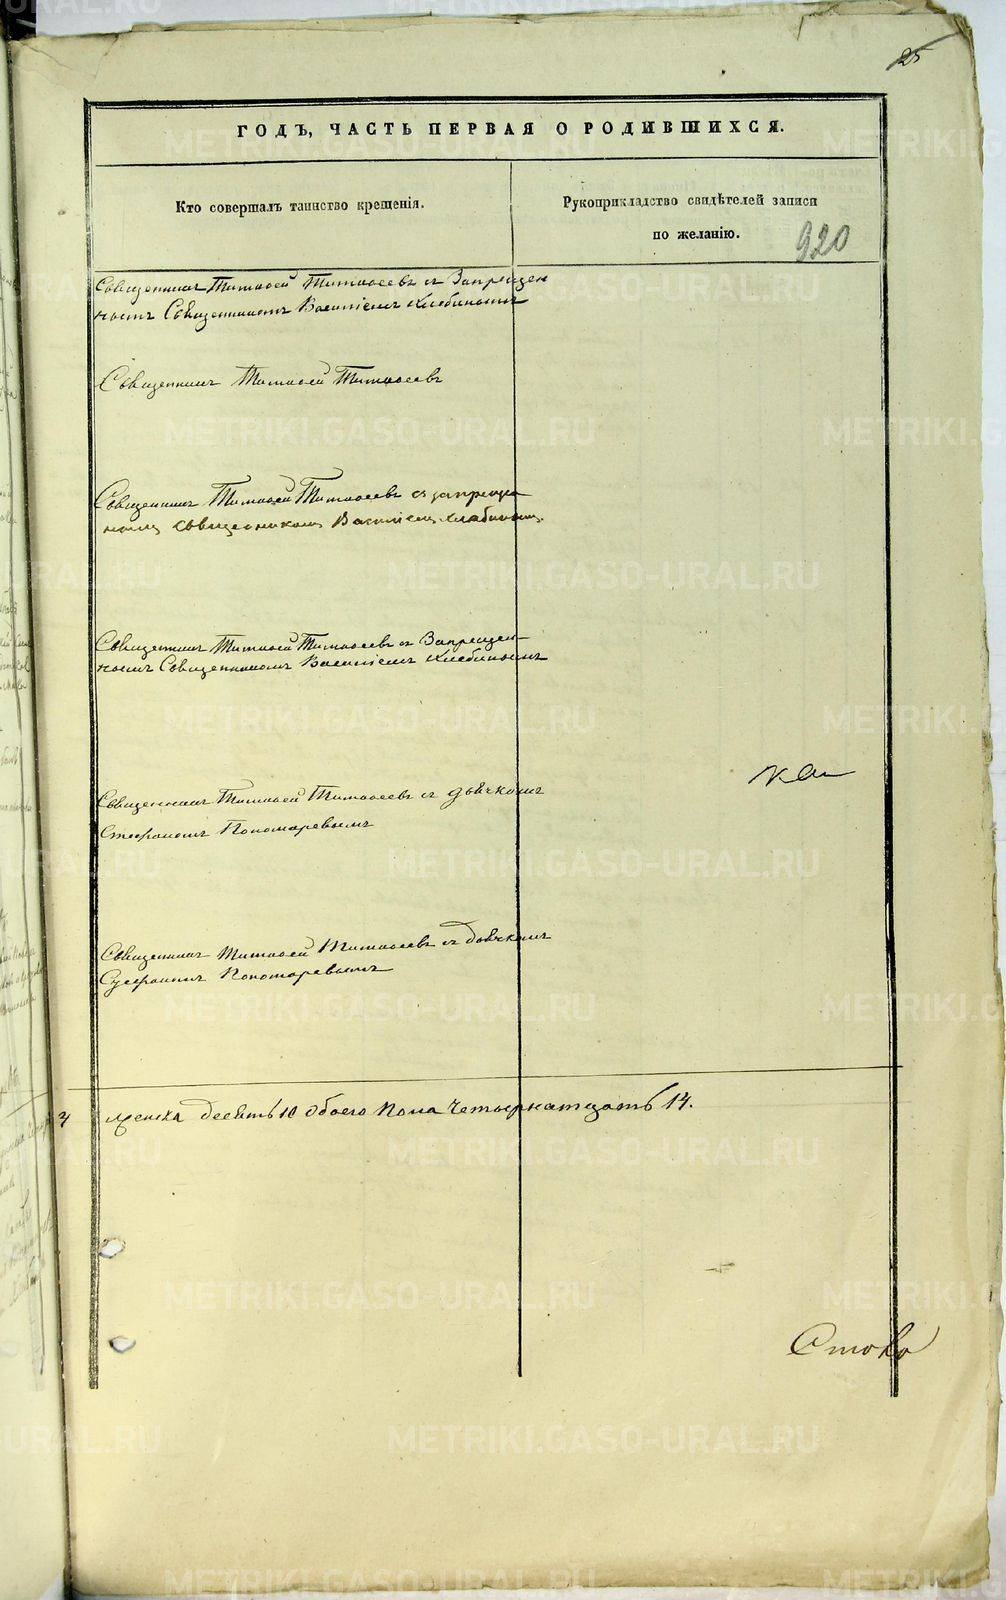 25
ГОДЪ, ЧАСТЬ ПЕРВАЯ О РОДИВШИХСЯ.
Кто совершалъ таинство крещенія.
Рукоприкладство свидѣтелей записи
по желанію.
920
Священникъ Тимоѳей Тимоѳеевъ съ Запрещен
нымъ Священникомъ Василіемъ Хлебинымъ
Священникъ Тимоѳей Тимоѳеевъ
Священникъ Тимоѳей Тимоѳеевъ съ запреще
нымъ священникомъ Василіемъ Хлебинымъ.
Священникъ Тимоѳей Тимоѳеевъ съ Запрещен-
нымъ Священникомъ Василіемъ Хлебинымъ
Священникъ Тимоѳей Тимоѳеевъ съ дьячкомъ
Стефаномъ Пономаревымъ
Священникъ Тимоѳей Тимоѳеевъ съ дьячкомъ
Стефаномъ Пономаревымъ
4 женска десять 10 обоего пола четырнатцать 14.
METRIKI.GASO-URAL.RU